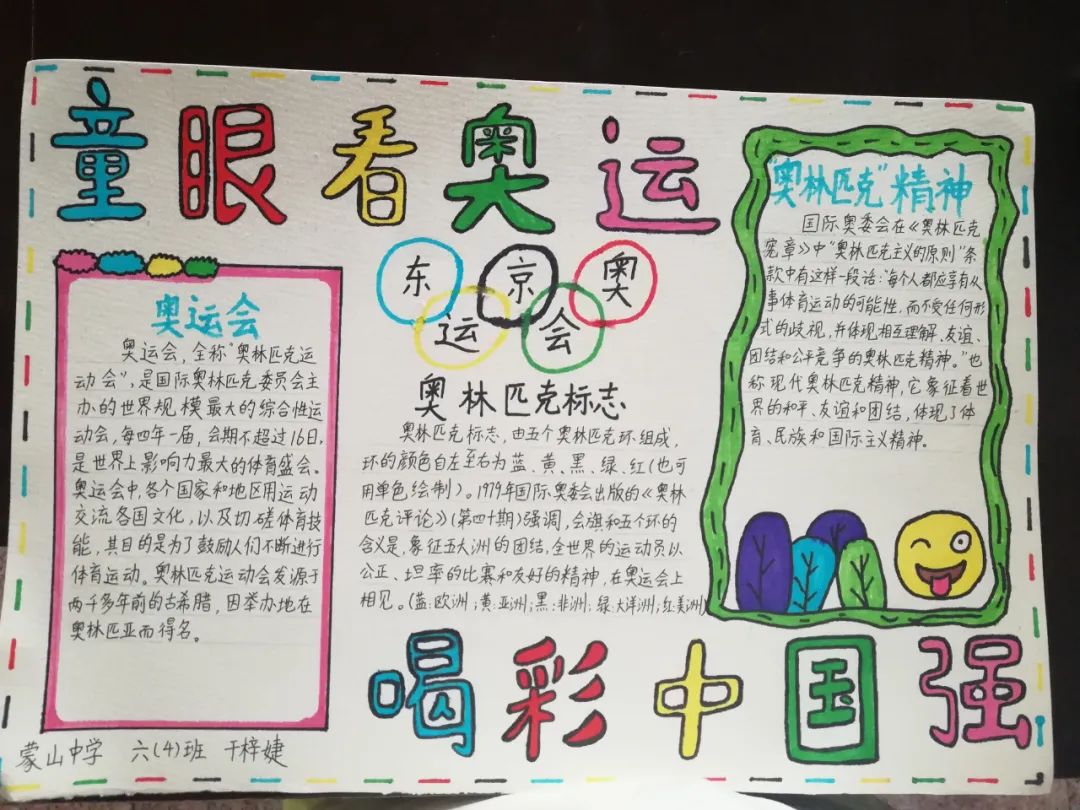 童眼看奥运
奥运会
奥运会，全称“奥林匹克运
动会”，是国际奥林匹克委员会主
办的世界规模最大的综合性运
动会，每四年一届，会期不超过16日，
是世界上影响力最大的体育盛会。
奥运会中，各个国家和地区用运动
交流各国文化，以及切磋体育技
能，其目的是为了鼓励人们不断进行
体育运动。奥林匹克运动会发源于
两千多年前的古希腊，因举办地在
奥林匹亚而得名。
东京奥
运会
奥林匹克标志
奥林匹克标志，由五个奥林匹克环组成，
环的颜色自左至右为蓝、黄、黑、绿、红(也可
用单色绘制)。1979年国际奥委会出版的《奥林
匹克评论》(第四十期)强调，会旗和五个环的
含义是，象征五大洲的团结，全世界的运动员以
公正、坦率的比赛和友好的精神，在奥运会上
相见。(蓝:欧洲；黄:亚洲；黑:非洲；绿:大洋洲；红:美洲)
“奥林匹克”精神
国际奥委会在《奥林匹克
宪章》中“奥林匹克主义的原则”条
款中有这样一段话:每个人都应享有从
事体育运动的可能性，而不受任何形
式的歧视，并体现相互理解、友谊、
团结和公平竞争的奥林匹克精神。”也
称现代奥林匹克精神，它象征着世
界的和平、友谊和团结，体现了体
育、民族和国际主义精神。
喝彩中国强
蒙山中学 六(4)班 于梓婕